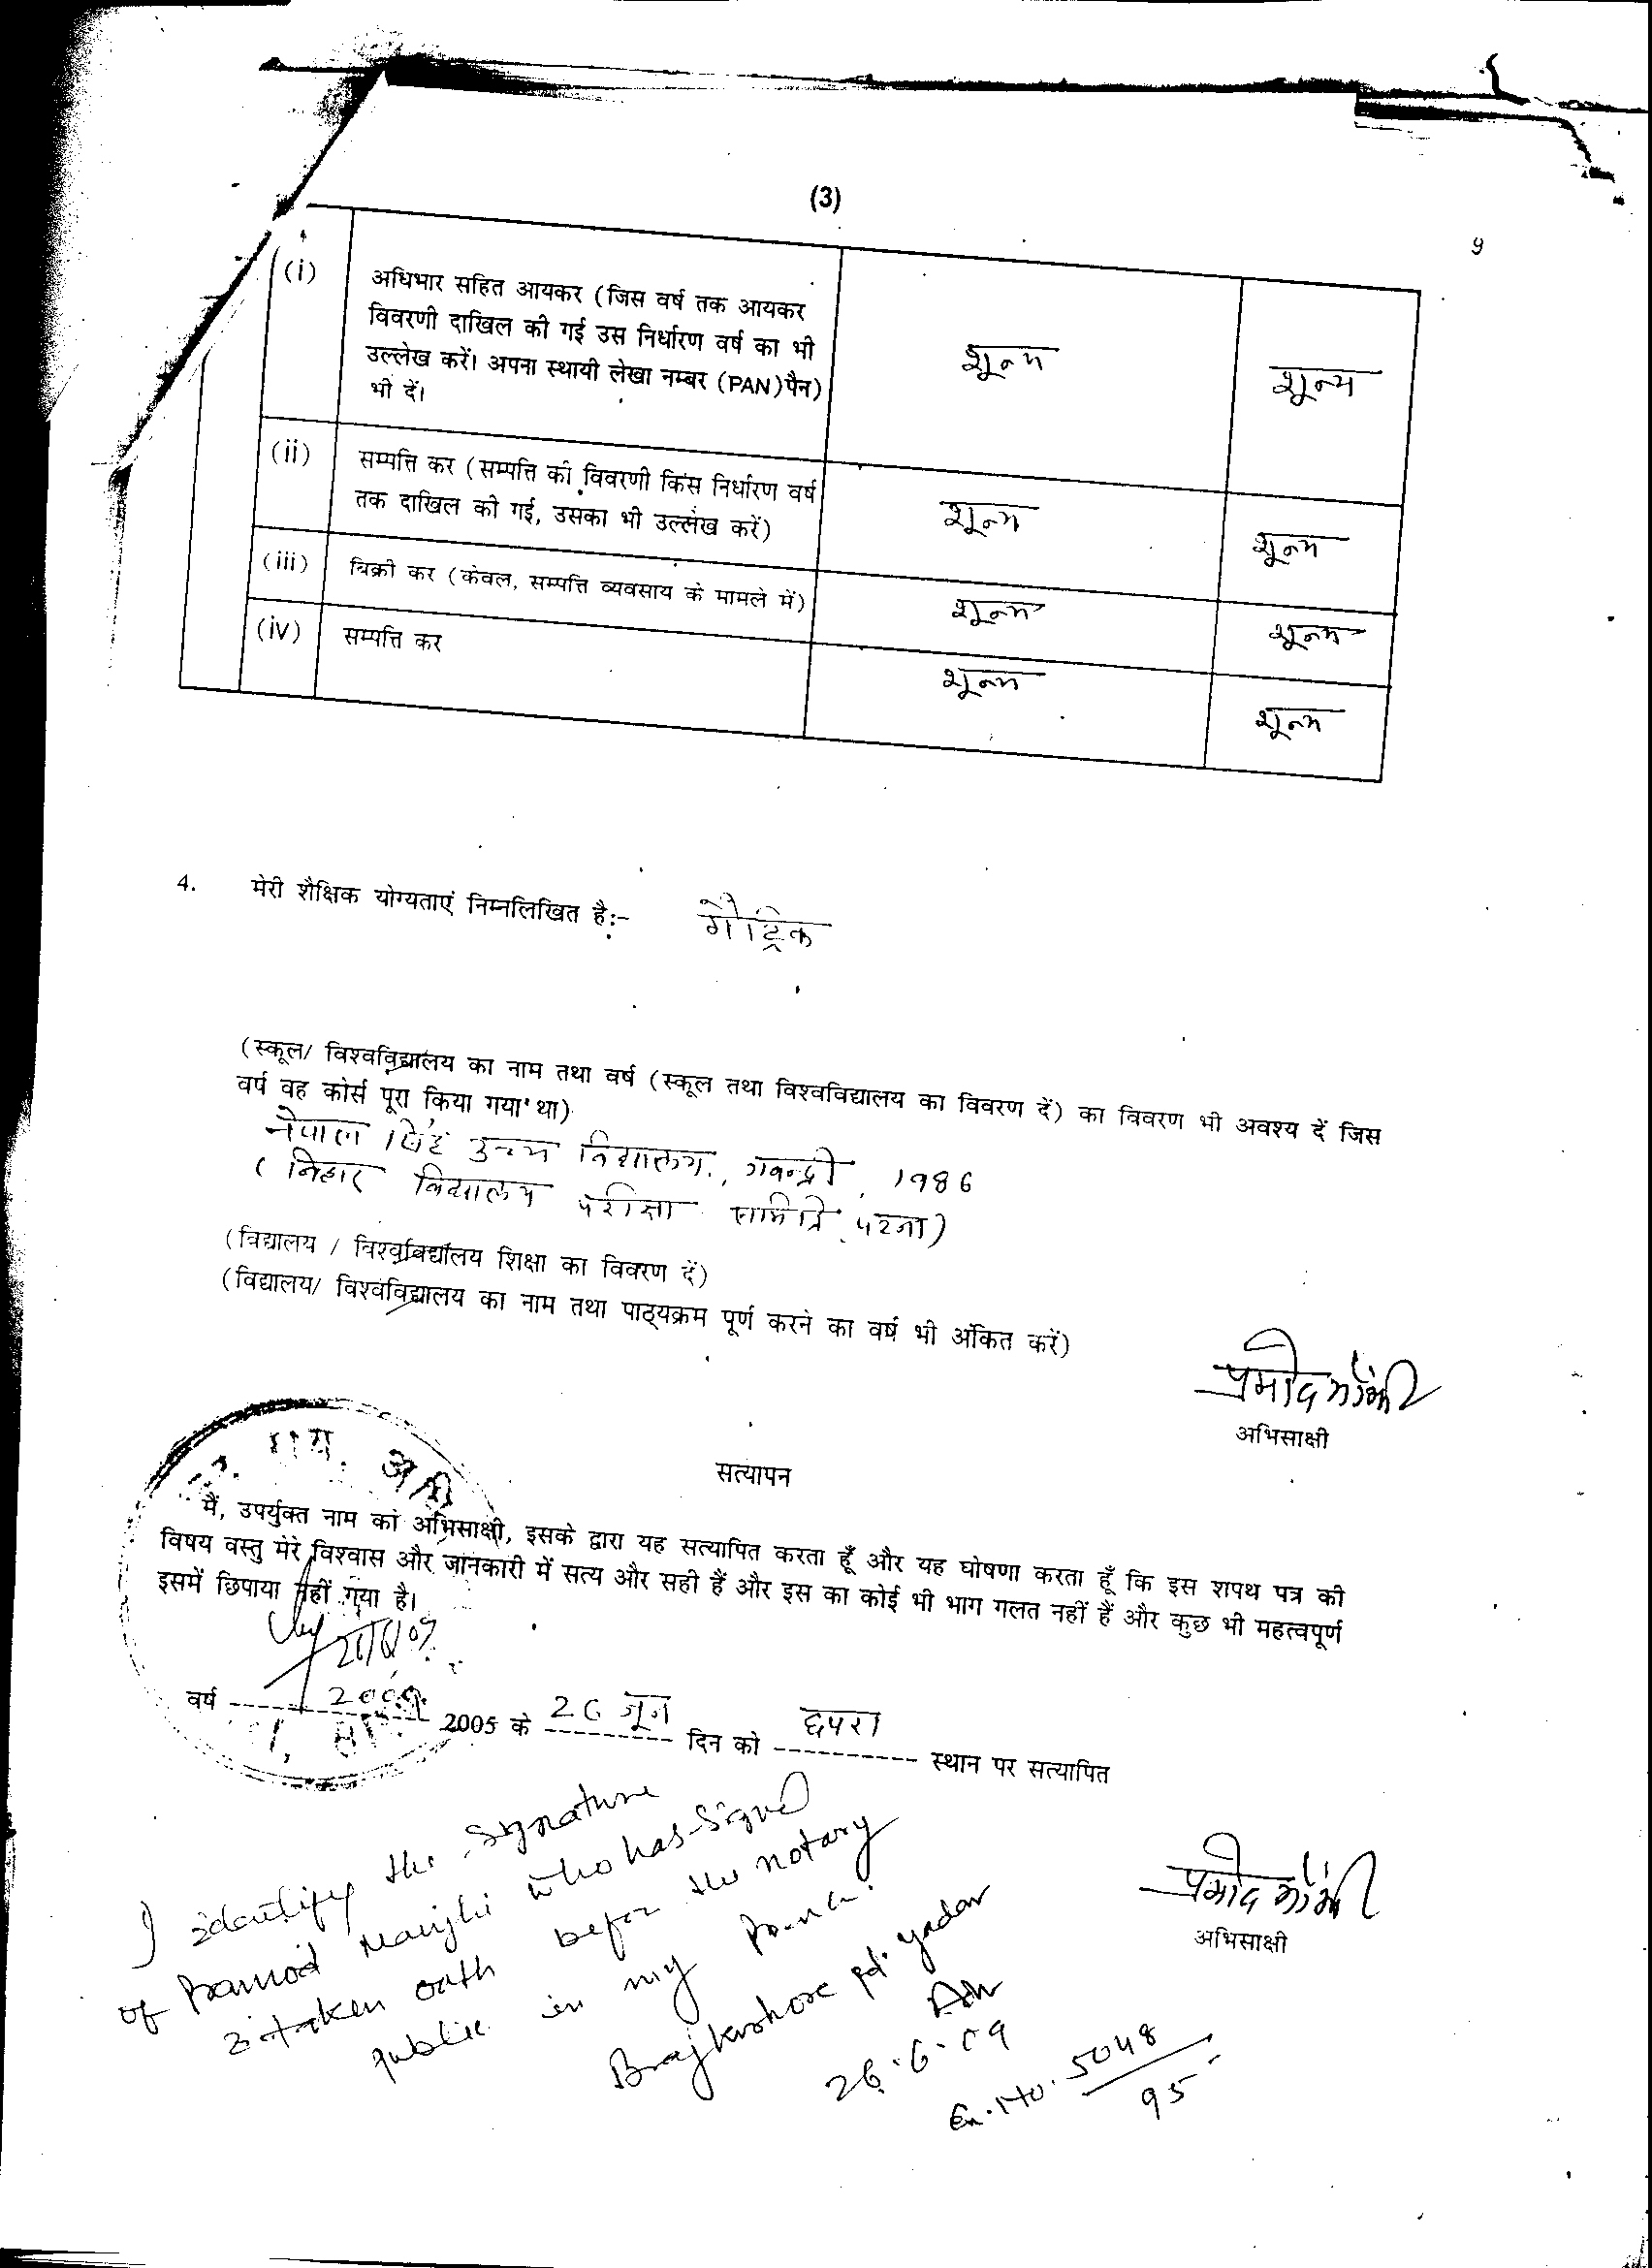 (3)
9
(i) अधिभार सहित आयकर (जिस वर्ष तक आयकर
विवरणी दाखिल की गई उस निर्धारण वर्ष का भी
उल्लेख करें। अपना स्थायी लेखा नम्बर (PAN)पैन)
भी दें।
शून्य शून्य
(ii) सम्पत्ति कर (सम्पत्ति की विवरणी किस निर्धारण वर्ष
तक दाखिल की गई, उसका भी उल्लेख करें)
शून्य शून्य
(iii) बिक्री कर (केवल, सम्पत्ति व्यवसाय के मामले में) शून्य शून्य
(iv) सम्पत्ति कर शून्य शून्य
4. मेरी शैक्षिक योग्यताएं निम्नलिखित है:- मैट्रिक
(स्कूल/ विश्वविद्यालय का नाम तथा वर्ष (स्कूल तथा विश्वविद्यालय का विवरण दें) का विवरण भी अवश्य दें जिस
वर्ष वह कोर्स पूरा किया गया था)
नेपाल सिंह उच्च विद्यालय, 1986
(बिहार विद्यालय परीक्षा समिति पटना)
(विद्यालय / विश्वविद्यालय शिक्षा का विवरण दें)
(विद्यालय/ विश्वविद्यालय का नाम तथा पाठ्यक्रम पूर्ण करने का वर्ष भी अंकित करें)
प्रमोद माँझी
अभिसाक्षी
सत्यापन
मैं, उपर्युक्त नाम का अभिसाक्षी, इसके द्वारा यह सत्यापित करता हूँ और यह घोषणा करता हूँ कि इस शपथ पत्र की
विषय वस्तु मेरे विश्वास और जानकारी में सत्य और सही हैं और इस का कोई भी भाग गलत नहीं हैं और कुछ भी महत्वपूर्ण
इसमें छिपाया नहीं गया है।
वर्ष 2009 2005 के 26 जून दिन को छपरा स्थान पर सत्यापित
प्रमोद माँझी
अभिसाक्षी
I identify the signature
of Pramod Manjhi who has signed
& taken oath before the notary
public in my
Brajkishore Pd. Yadav
Adv
26.6.09
En. No. 5048
95